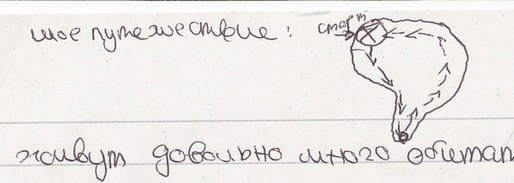 мое путешествие: старт
живут довольно много обитат